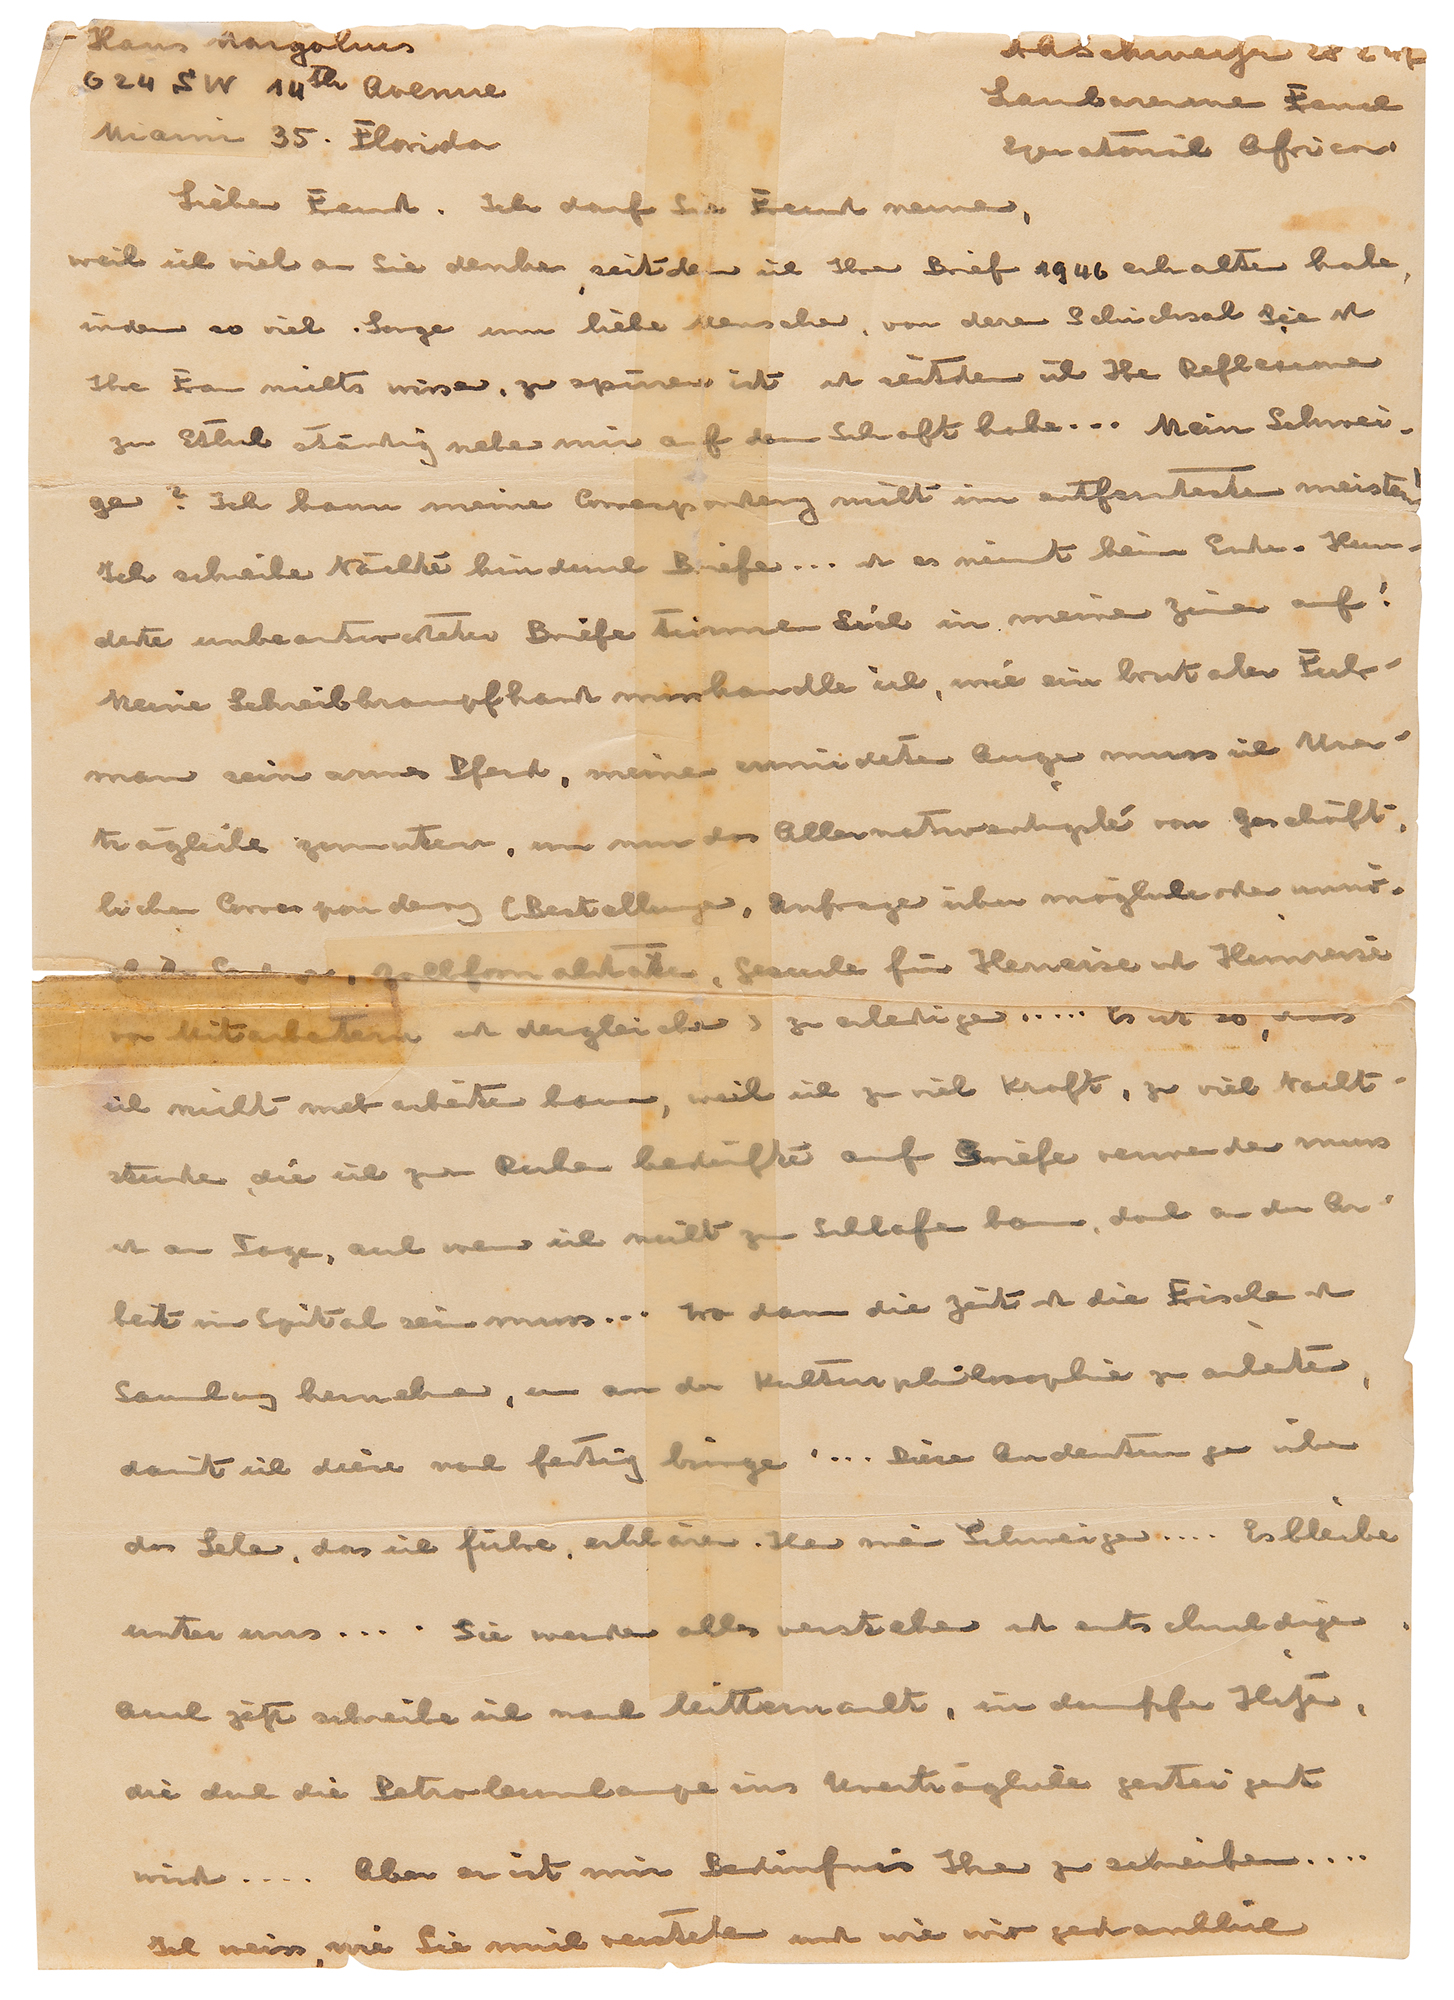 Hans Margolius
624 SW 14th Avenue
Miami 35. Florida
A Schweitzer 28 2 47
Lambarene
Equatorial Africa.
Lieber Freund. Ich darf Sie Freund nennen,
weil ich viel an Sie denke, seitdem ich Ihren Brief 1946 erhalten habe,
indem so viel Sorge um liebe Menschen, von deren Schicksal Sie u
Ihre Frau nichts wissen, zu spüren ist u seitdem ich Ihre Reflexionen
zu Ethik ständig neben mir auf dem Schaft habe... Mein Schwei-
gen? Ich kann meine Correspondenz nicht im entferntesten meistern!
Ich schreibe Nächte hindurch Briefe... u es nimmt kein Ende. Hun-
derte unbeantworteter Briefe türmen sich in meinem Zimmer auf!
Meine Schreibkrampfhand misshandle ich, wie ein brutaler Fuhr-
mann sein armes Pferd, meinen ermüdeten Augen muss ich Uner-
trägliches zumuten, um nur das Allernotwendigste von geschäft-
licher Correspondenz (Bestellungen, Anfragen über mögliche oder unmö-
Zollformalitäten, Gesuche für Herreise u Heimreise
von Mitarbeitern u dergleichen) zu erledigen..... Es ist so, dass
ich nicht mehr arbeiten kann, weil ich zu viel Kraft, zu viel Nacht-
stunden die ich zum Ruhen bedürfte auf Briefe verwenden muss
u am Tage, auch wenn ich nicht zum Schlafen kam, doch an der Ar-
beit im Spital sein muss... Wo dann die Zeit u die Frische u
Sammlung hernehmen, um an der Kulturphilosophie zu arbeiten,
damit ich diese noch fertig bringe!... Diese Andeutungen über
das Leben, das ich führe, erklären Ihnen mein Schweigen.... Es bleibe
unter uns.... Sie werden alles verstehen u entschuldigen.
Auch jetzt schreibe ich nach Mitternacht, in dumpfer Hitze,
die durch die Petroleumlampe ins Unerträgliche gesteigert
wird.... Aber es ist mir Bedürfnis Ihnen zu schreiben....
Ich weiss, wie Sie mich verstehen und wie wir gedanklich